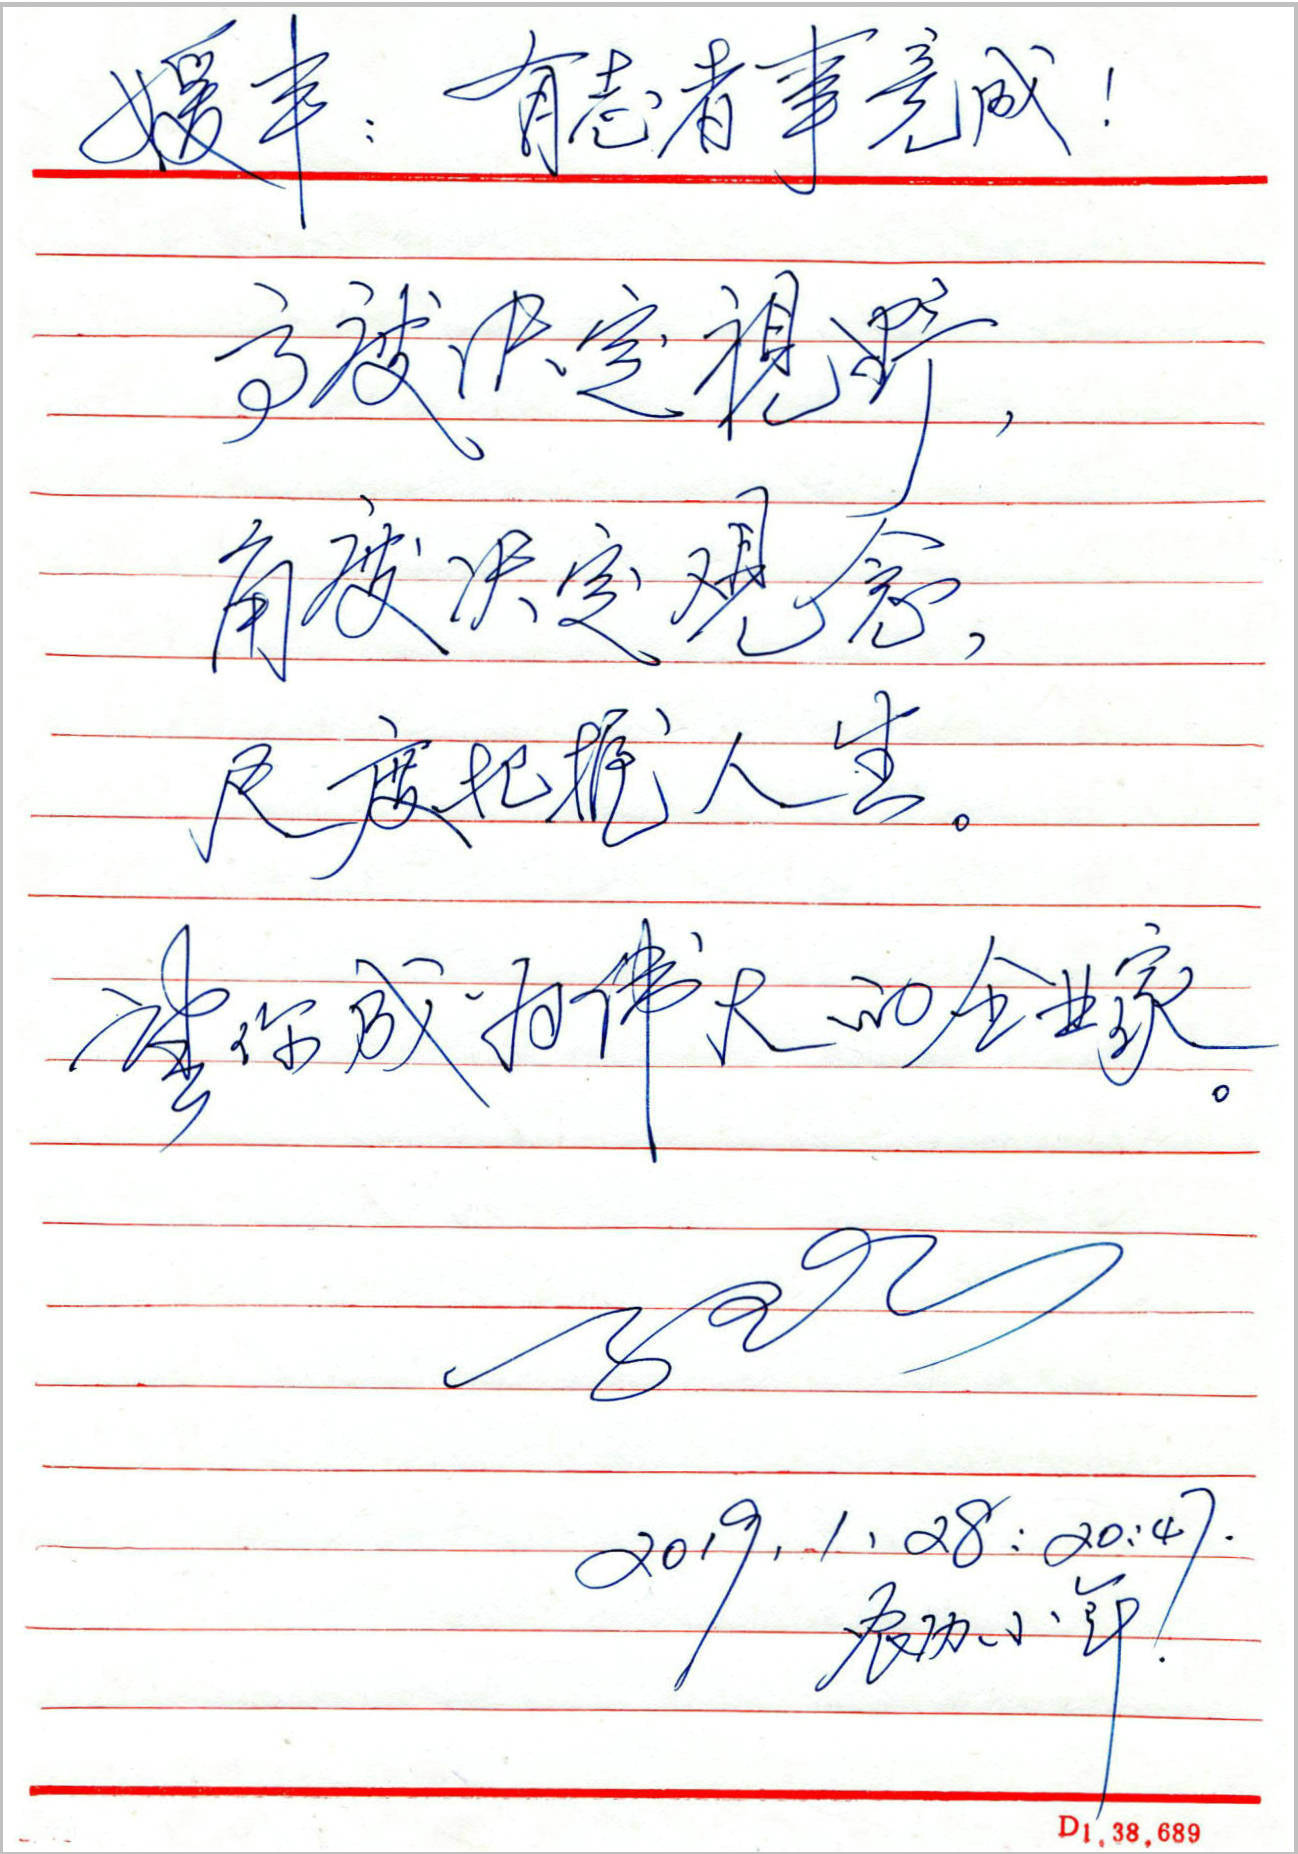 媛丰：有志者事竟成！
高度决定視野，
角度决定观念，
尺度把握人生。
望你成为伟大的企业家。
2019.1.28:20:47.
农历小年.
D1.38.689